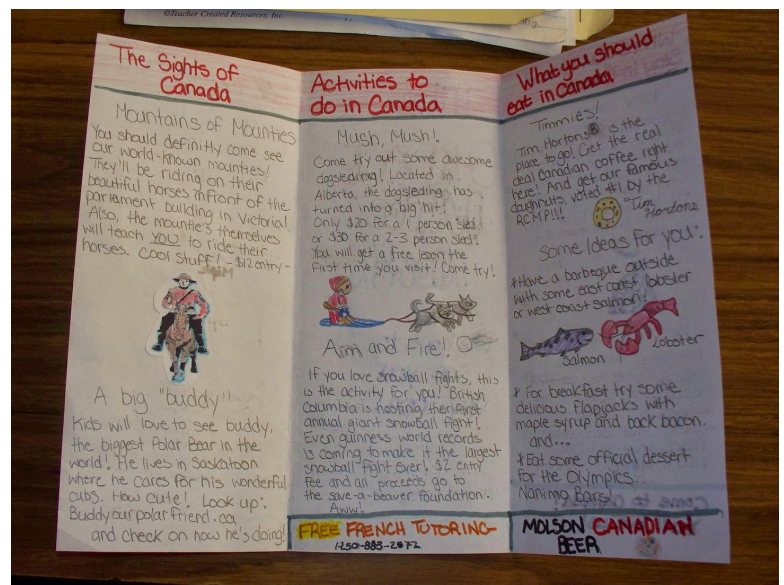 ©Teacher Created Resources, Inc.
The Sights of
Canada
Mountains of Mounties
You should definitly come see
our world-known mounties!
They'll be riding on their
beautiful horses infront of the
parlament building in Victoria!
Also, the mountie's themselves
will teach YOU to ride their
horses. Cool stuff! -$12 entry-
A big "buddy"
Kids will love to see buddy,
the biggest Polar Bear in the
world! He lives in Saskatoon
where he cares for his wonderful
cubs. How cute! Look up:
Buddyourpolarfriend.ca
and check on how he's doing!
Activities to
do in Canada
Mush, Mush!
Come try out some awesome
dogsledding! Located in
Alberta, the dogsledding has
turned into a big hit!
Only $20 for a 1 person sled
or $30 for a 2-3 person sled!
You will get a free lesson the
first time you visit! Come try!
Aim and Fire!
If you love snowball fights, this
is the activity for you! British
Columbia is hosting their first
annual giant snowball fight!
Even guinness world records
is coming to make it the largest
snowball fight ever! $2 entry
fee and all proceeds go to
the save-a-beaver foundation!
Aww!
FREE FRENCH TUTORING
What you should
eat in Canada
Timmies!
Tim Hortons® is the
place to go! Get the real
deal Canadian coffee right
here! And get our famous
doughnuts, voted #1 by the
RCMP!!!
Tim
Hortons
Some Ideas for you!
*Have a barbeque outside
with some east coast lobster
or west coast salmon!
Salmon
Lobster
* For breakfast try some
delicious flapjacks with
maple syrup and back bacon.
and...
*Eat some official dessert
for the Olympics...
Nanimo Bars!
MOLSON CANADIAN
BEER